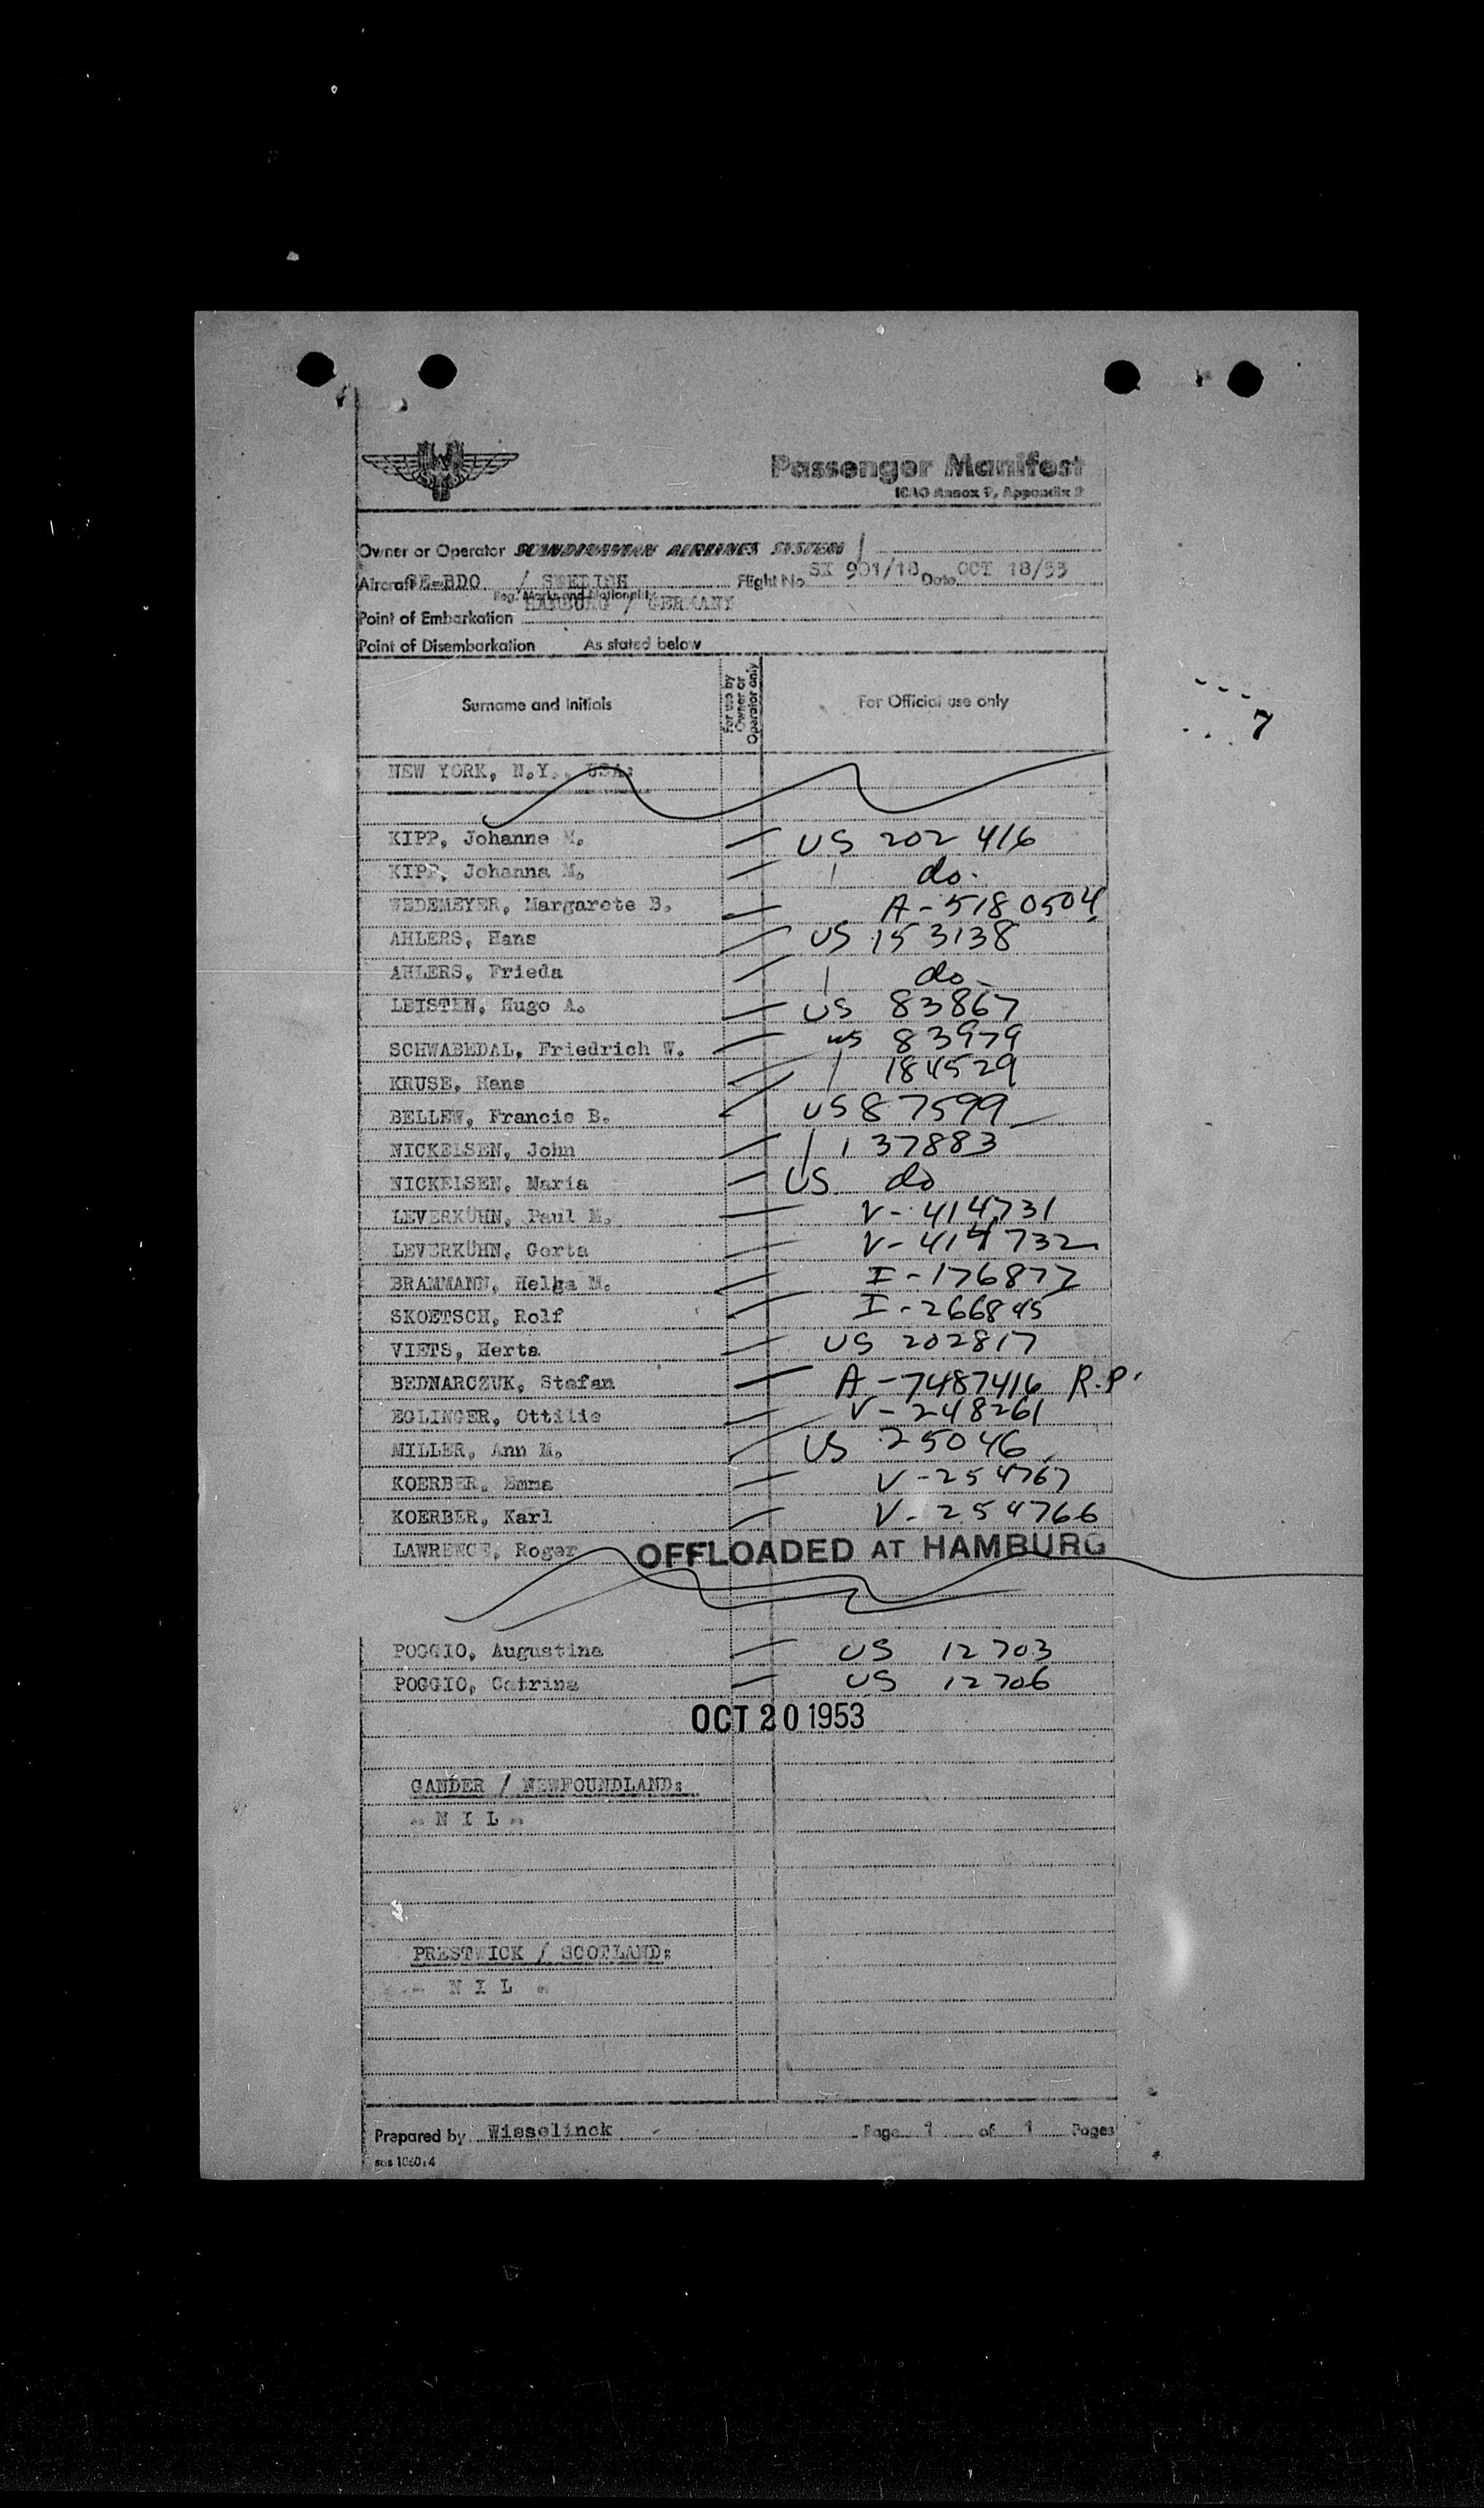 Passenger Manifest
ICAO Annex 9, Appendix 3
Owner or Operator SCANDINAVIAN AIRLINES SYSTEM
Aircraft SE-BDO / SWEDISH Flight No. SK 901/18 Date OCT 18/53
Reg. Marks and Nationality
Point of Embarkation HAMBURG / GERMANY
Point of Disembarkation As stated below
Surname and Initials For use by Owner or Operator only For Official use only
7
NEW YORK, N.Y., USA:
KIPP, Johanne M. US 202 416
KIPP, Johanna M. do.
WEDEMEYER, Margarete B. A-5180504
AHLERS, Hans US 153138
AHLERS, Frieda do
LEISTEN, Hugo A. US 83867
SCHWABEDAL, Friedrich W. US 83979
KRUSE, Hans 184529
BELLEW, Francis B. US 87599
NICKELSEN, John 137883
NICKELSEN, Maria US do
LEVERKÜHN, Paul M. V-414731
LEVERKÜHN, Gerta V-414732
BRAMMANN, Helga M. I-176877
SKOETSCH, Rolf I-266845
VIETS, Herta US 202817
BEDNARCZUK, Stefan A-7487416 R.P.
EGLINGER, Ottilie V-248261
MILLER, Ann M. US 25046
KOERBER, Emma V-254767
KOERBER, Karl V-254766
LAWRENCE, Roger OFFLOADED AT HAMBURG
POGGIO, Augustina US 12703
POGGIO, Catrina US 12706
OCT 20 1953
GANDER / NEWFOUNDLAND:
- N I L -
PRESTWICK / SCOTLAND:
- N I L -
Prepared by Wisselinck Page 1 of 1 Pages
sas 1060:4